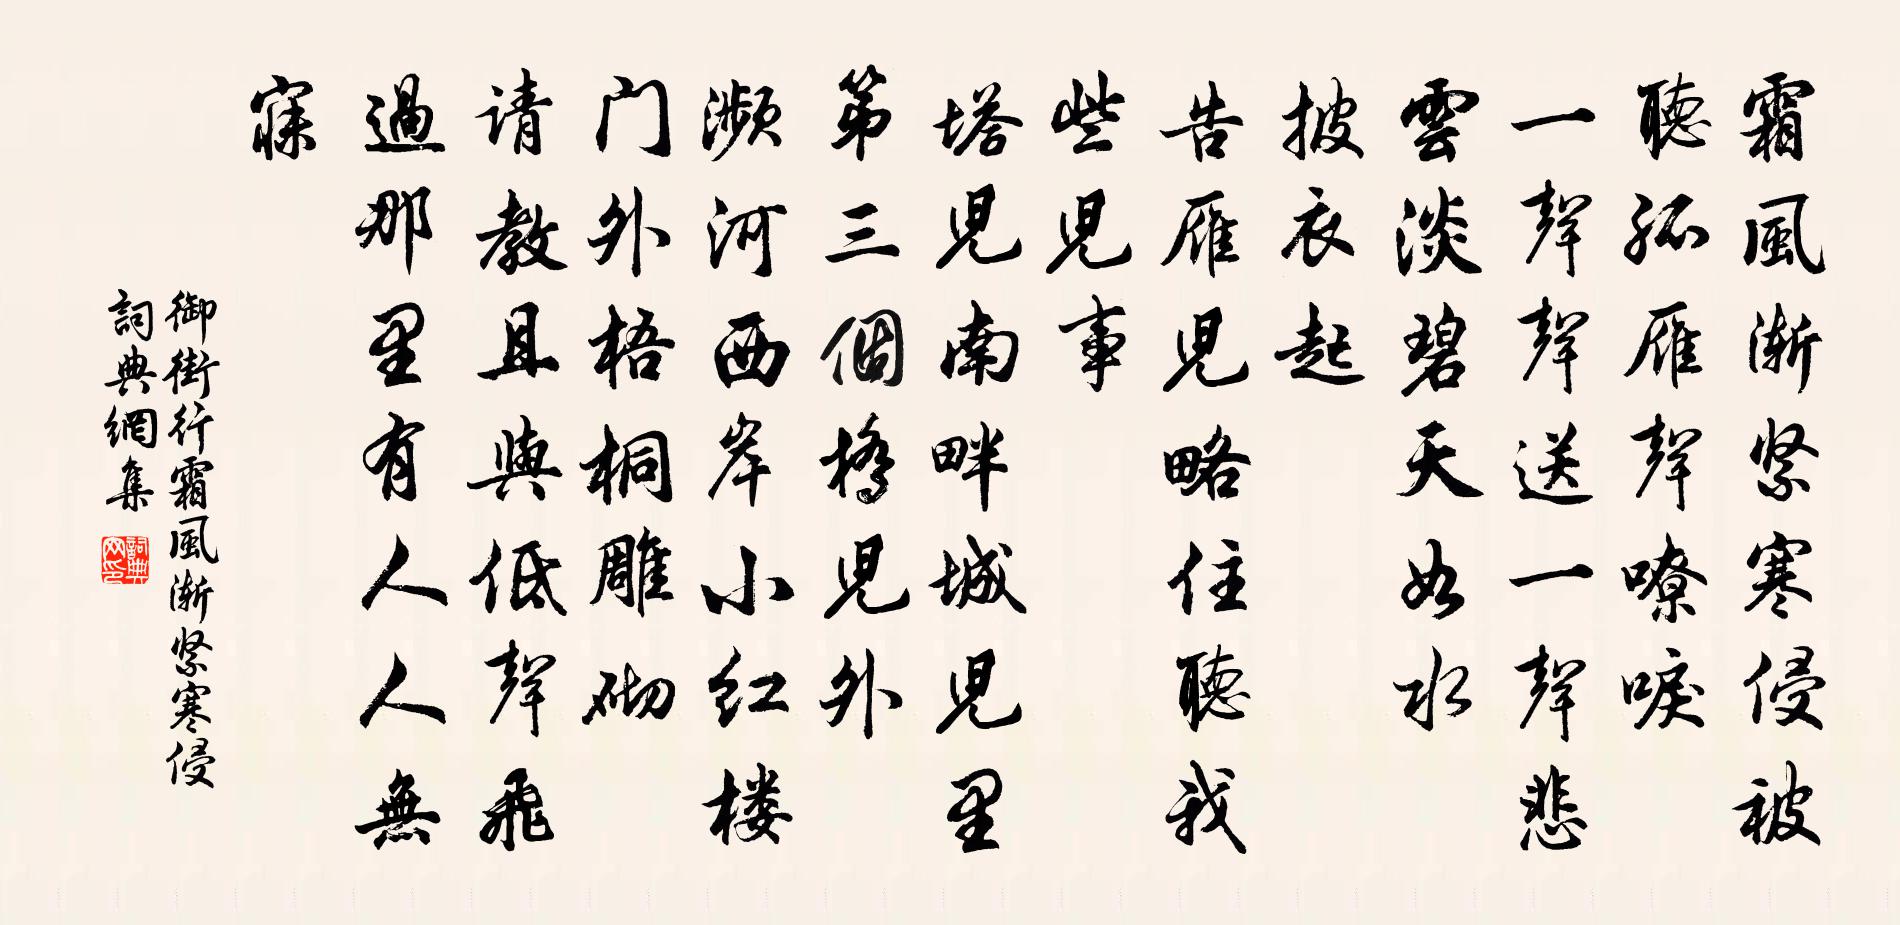 霜風渐紧寒侵被
聽孤雁聲嘹唳
一聲聲送一聲悲
雲淡碧天如水
披衣起
告雁兒略住聽我
些兒事
塔兒南畔城兒里
第三個橋兒外
濒河西岸小红楼
门外梧桐雕砌
请教且與低聲飛
過那里有人人無
寐
御街行霜風渐紧寒侵
詞典網集
詞典
网印